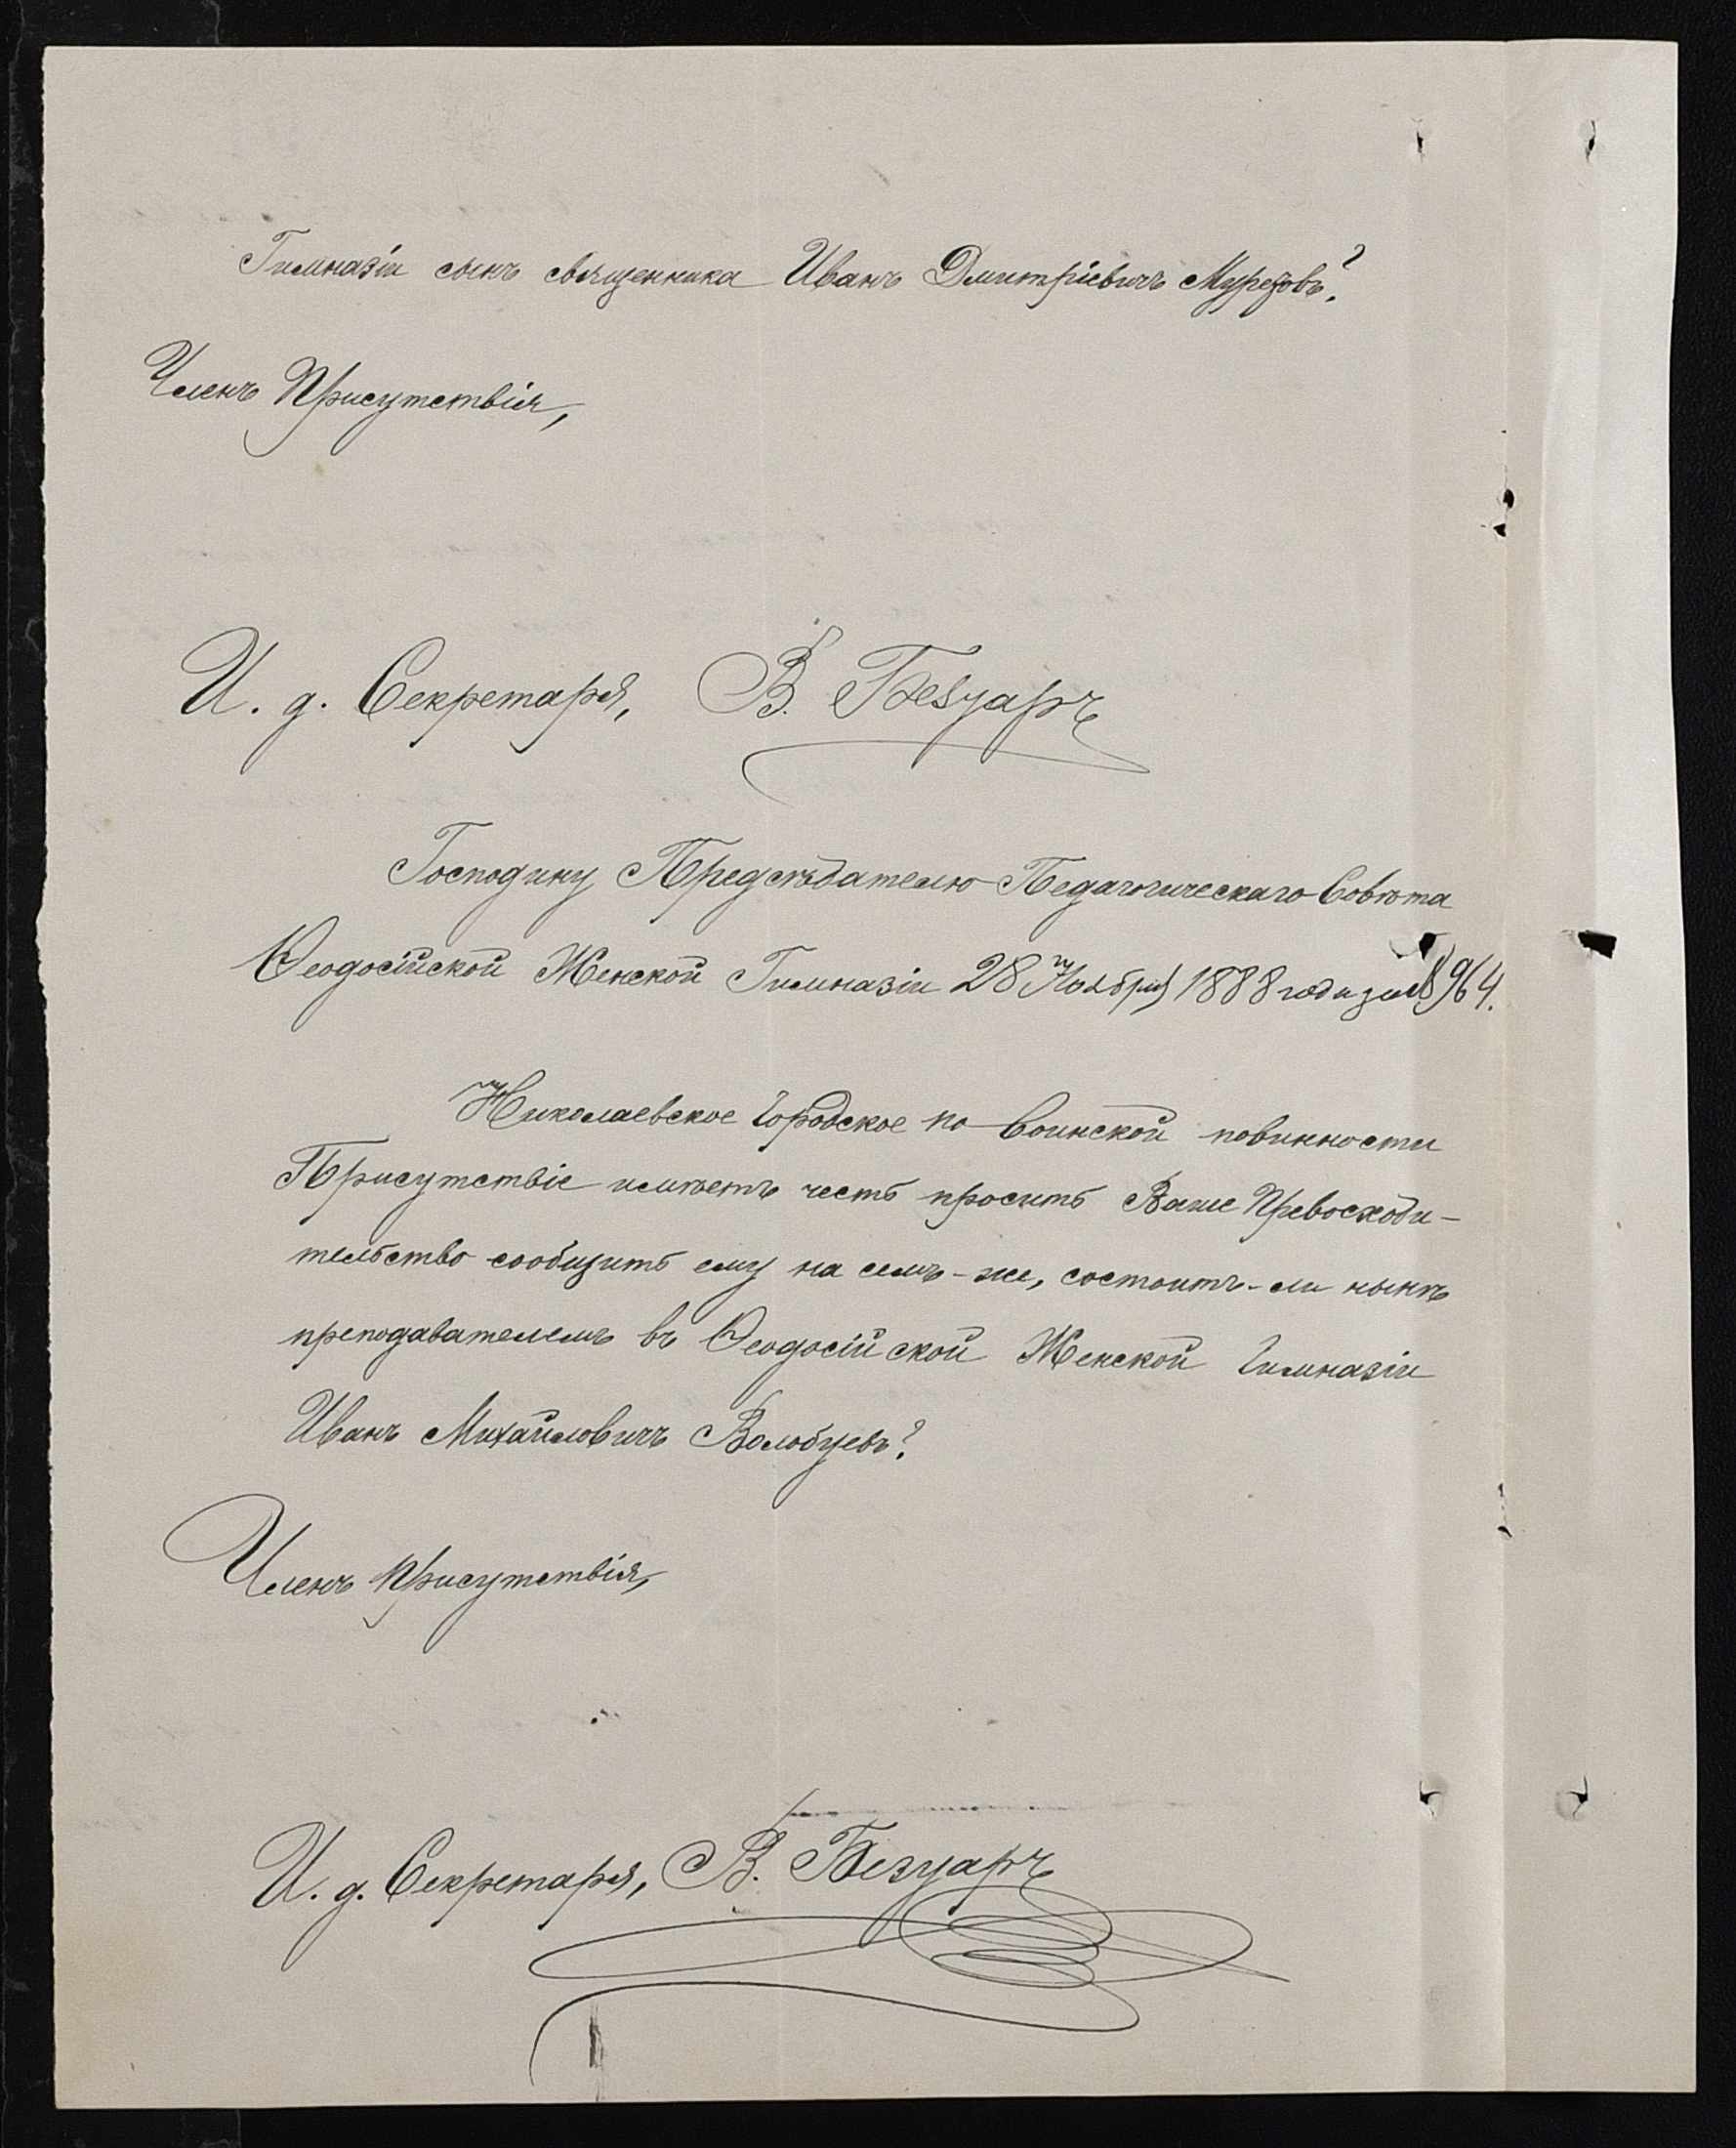 Гимназіи сынъ священника Иванъ Дмитріевичъ Муретовъ?
Членъ Присутствія,
И. д. Секретаря, В. Безуаръ
Господину Предсѣдателю Педагогическаго Совѣта
Ѳеодосійской Женской Гимназіи 28 Ноября 1888 года за № 964.
Николаевское Городское по воинской повинности
Присутствіе имѣетъ честь просить Ваше Превосходи-
тельство сообщить ему на семъ-же, состоитъ-ли нынѣ
преподавателемъ въ Ѳеодосійской Женской Гимназіи
Иванъ Михайловичъ Волобуевъ?
Членъ Присутствія,
И. д. Секретаря, В. Безуаръ